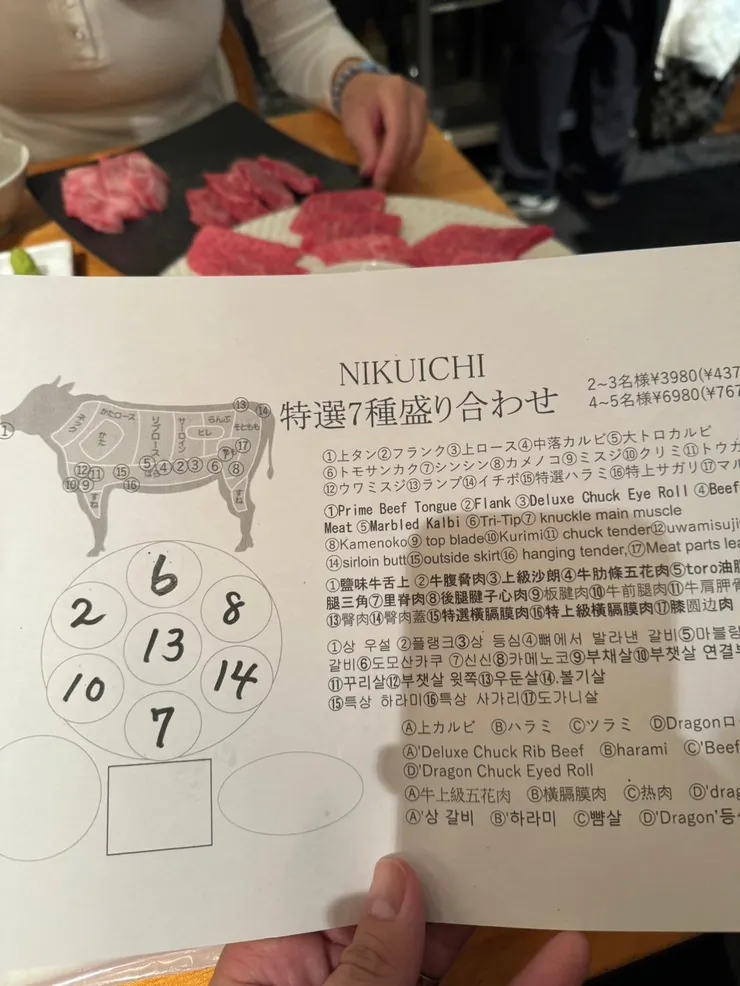 NIKUICHI
特選7種盛り合わせ
2~3名様¥3980(¥437
4~5名様¥6980(¥767
①上タン②フランク③上ロース④中落カルビ⑤大トロカルビ
⑥トモサンカク⑦シンシン⑧カメノコ⑨ミスジ⑩クリミ⑪トウガ
⑫ウワミスジ⑬ランプ⑭イチボ⑮特選ハラミ⑯特上サガリ⑰マル
①Prime Beef Tongue ②Flank ③Deluxe Chuck Eye Roll ④Beef
Meat ⑤Marbled Kalbi ⑥Tri-Tip⑦ knuckle main muscle
⑧Kamenoko⑨ top blade⑩Kurimi⑪ chuck tender⑫uwamisuji
⑭sirloin butt⑮outside skirt⑯ hanging tender,⑰Meat parts lea
①鹽味牛舌上 ②牛腹脅肉③上級沙朗④牛肋條五花肉⑤toro油脂
腿三角⑦里脊肉⑧後腿腱子心肉⑨板腱肉⑩牛前腿肉⑪牛肩胛骨
⑬臀肉⑭臀肉蓋⑮特選橫膈膜肉⑯特上級橫膈膜肉⑰膝圆边肉
①상 우설 ②플랭크③상 등심④뼈에서 발라낸 갈비⑤마블링
갈비⑥도모산카쿠 ⑦신신⑧카메노코⑨부채살⑩부챗살 연결부
⑪꾸리살⑫부챗살 윗쪽⑬우둔살⑭.볼기살
⑮특상 하라미⑯특상 사가리⑰도가니살
Ⓐ上カルビ Ⓑハラミ Ⓒツラミ ⒹDragonロ
Ⓐ'Deluxe Chuck Rib Beef Ⓑharami Ⓒ'Beef
Ⓓ'Dragon Chuck Eyed Roll
Ⓐ牛上級五花肉 Ⓑ橫膈膜肉 Ⓒ热肉 Ⓓ'drag
Ⓐ'상 갈비 Ⓑ'하라미 Ⓒ뺨살 Ⓓ'Dragon'등
①
ネック
かたロース
かた
リブロース
サーロイン
ヒレ
らんぷ
そともも
ばら
すね
すね
⑬
⑭
⑰
⑫⑪ ⑮ ⑤④②③ ⑥ ⑧
⑩⑨ ⑯
6
2
8
13
10
14
7